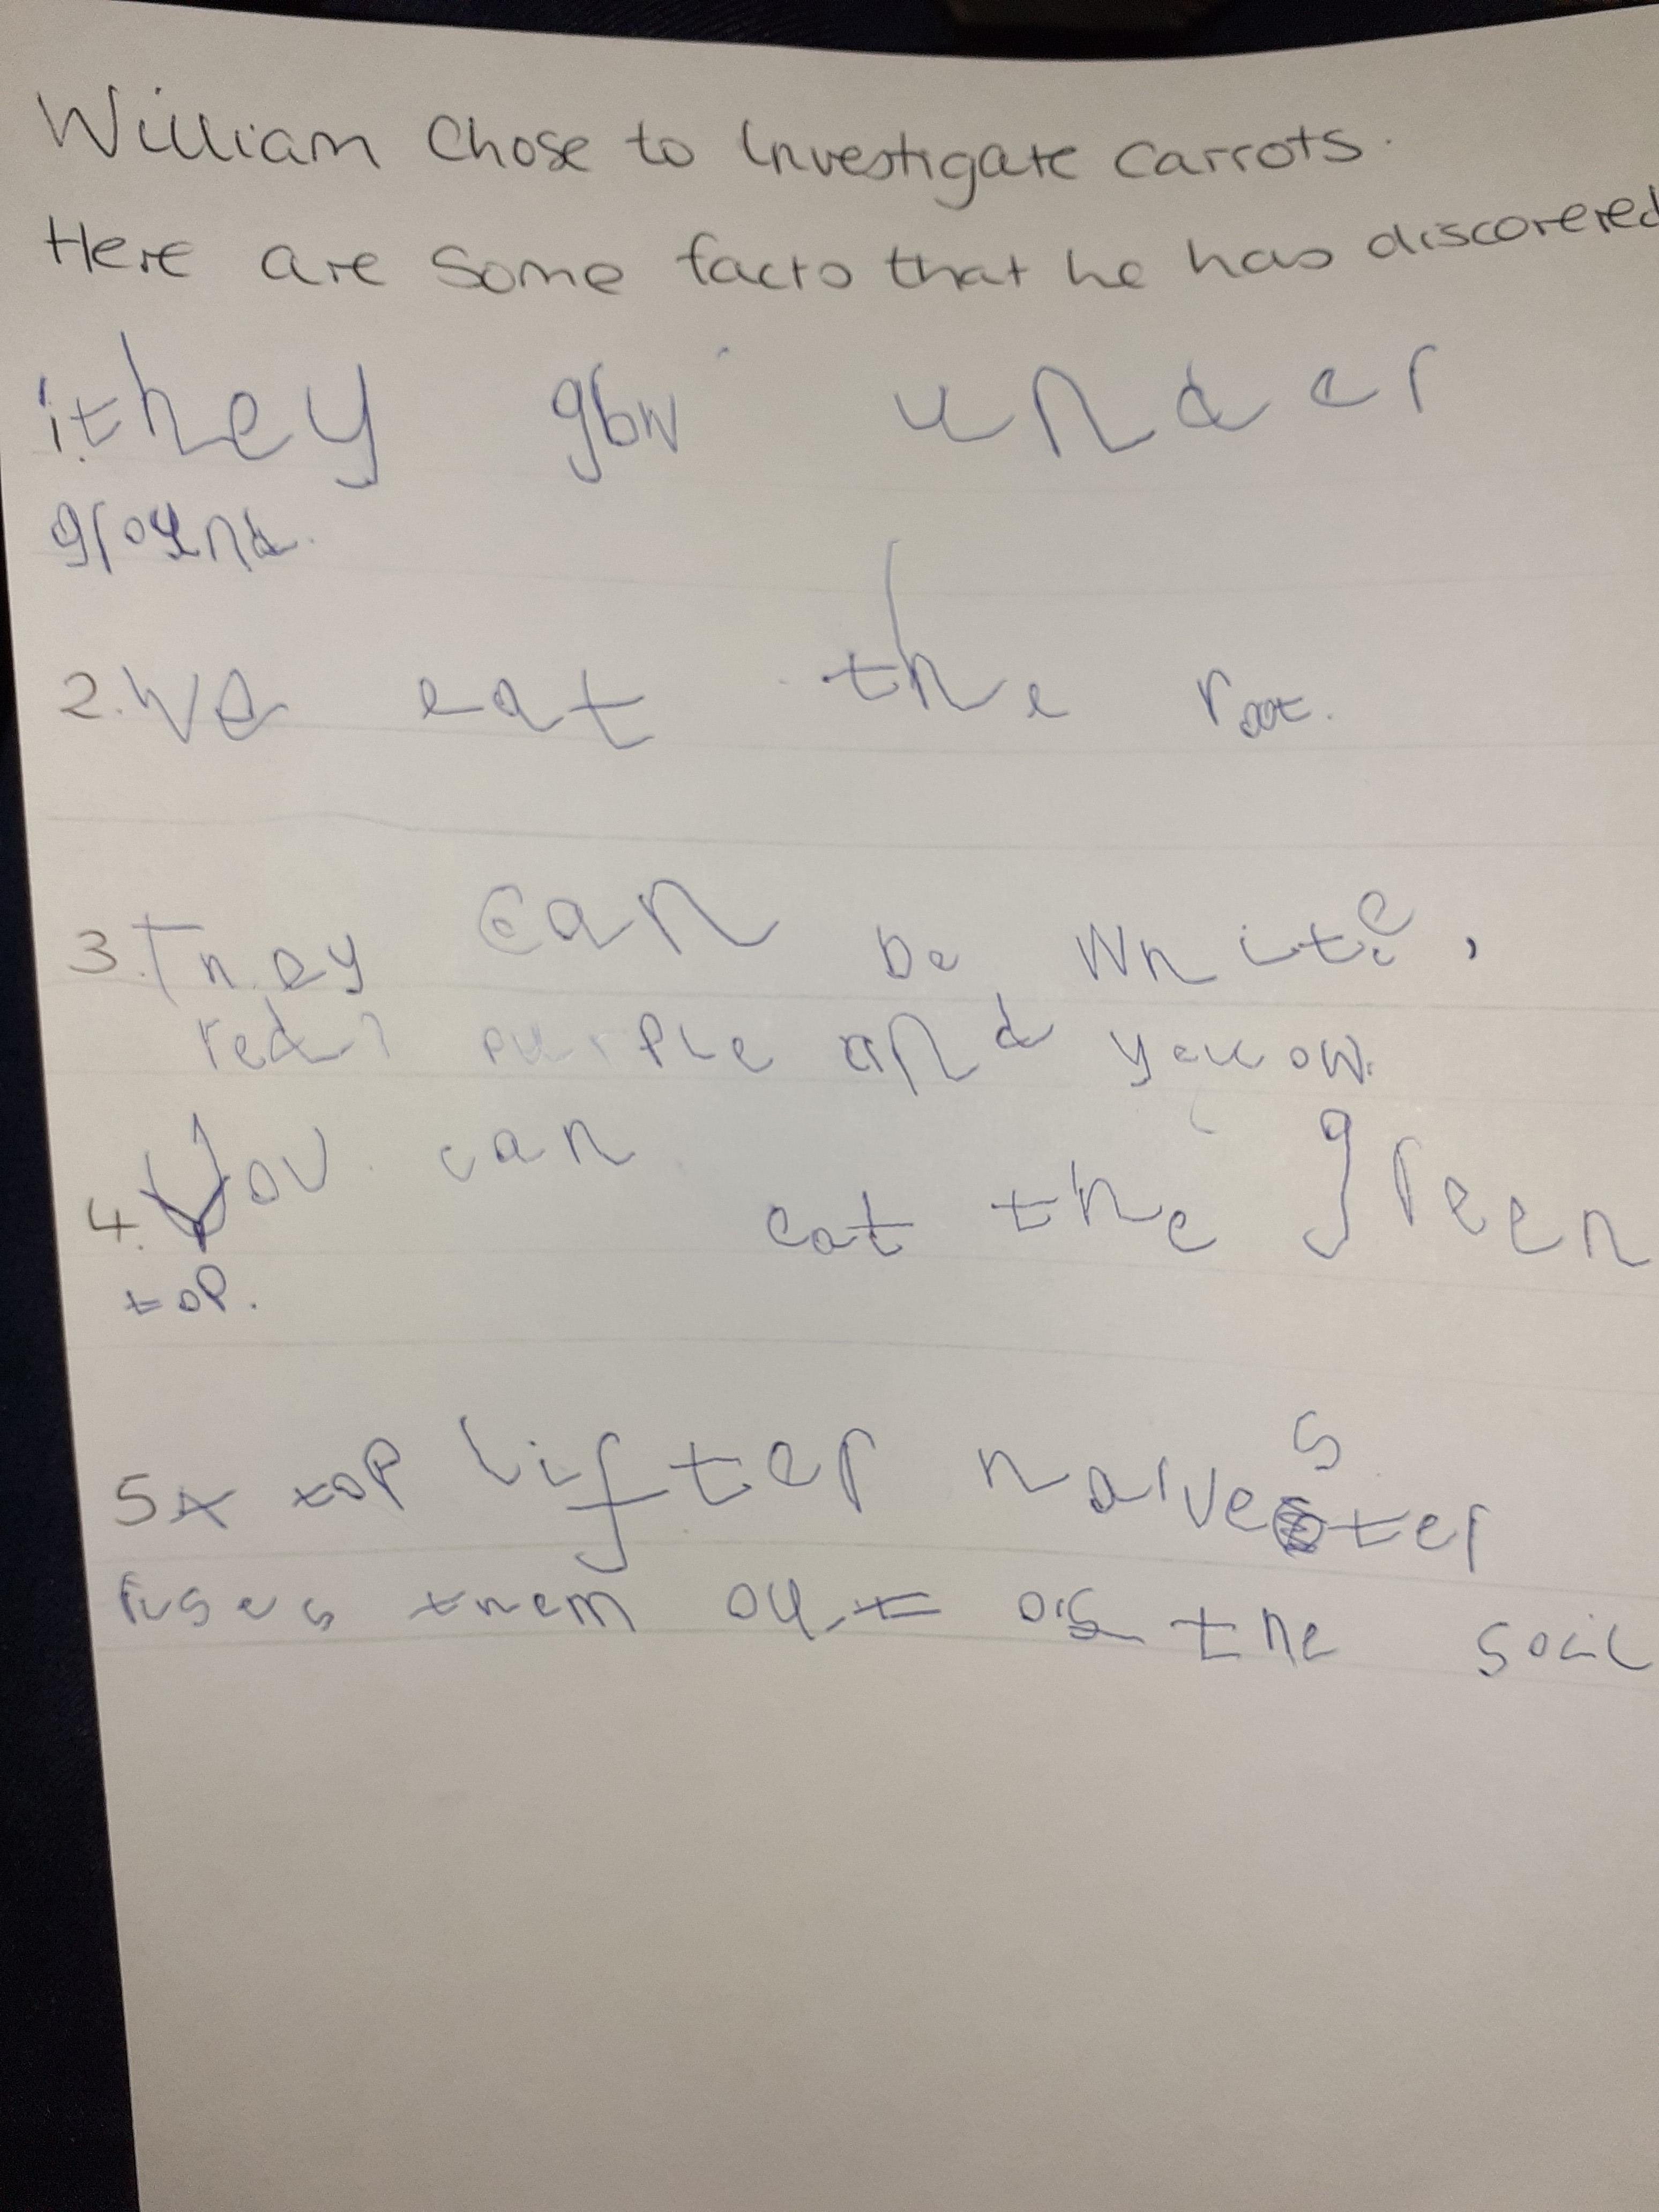 William Chose to Investigate carrots.
Here are some facts that he has discovered
1. they gow under
ground.
2. We eat the root.
3. They can be white,
red, purple and yellow.
4. You can eat the green
top.
5 A top lifter harvester
them out of the soil